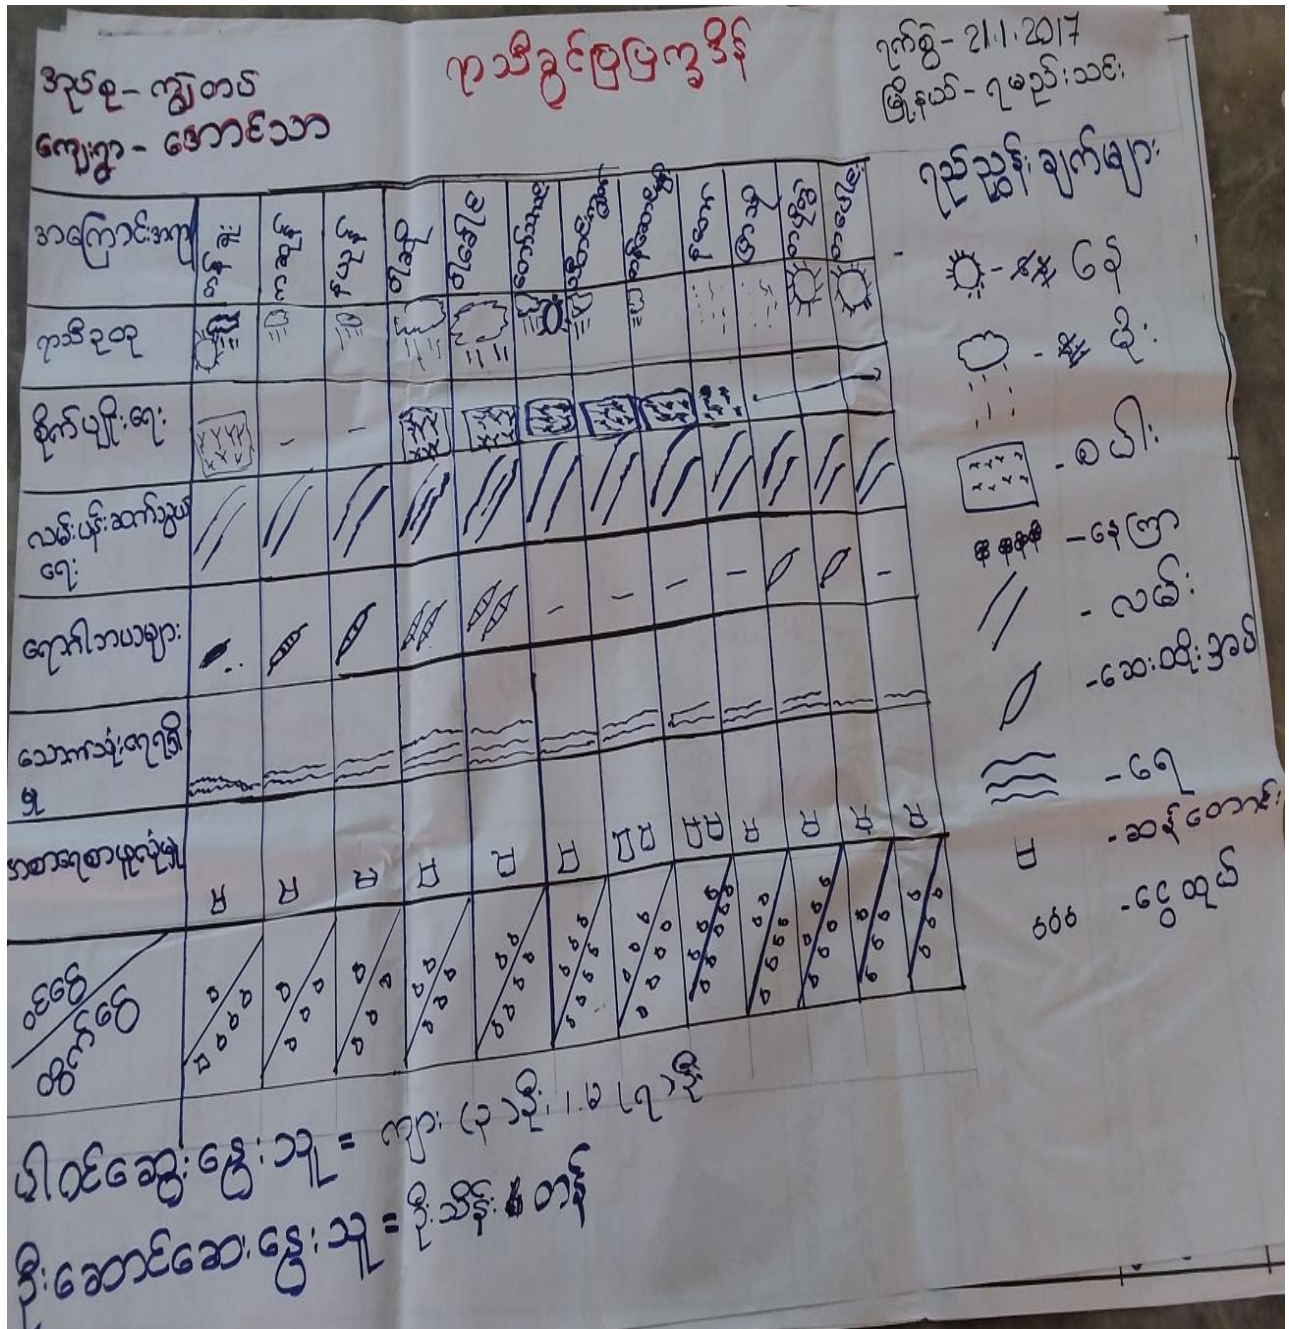 ရာသီခွင်ပြပြက္ခဒိန်
ရက်စွဲ - 21.1.2017
မြို့နယ် - ရမည်းသင်း
အုပ်စု - ကျွဲတပ်
ကျေးရွာ - အောင်သာ
အကြောင်းအရာ
တန်ခူး
ကဆုန်
နယုန်
ဝါဆို
ဝါခေါင်
တော်သလင်း
သီတင်းကျွတ်
တန်ဆောင်မုန်း
နတ်တော်
ပြာသို
တပို့တွဲ
တပေါင်း
ရာသီဥတု
စိုက်ပျိုးရေး
လမ်းပန်းဆက်သွယ်
ရေး
ရောဂါဘယများ
သောက်သုံးရေရရှိ
မှု
အစားရေစာဖူလုံမှု
ဝင်ငွေ
ထွက်ငွေ
ရည်ညွှန်းချက်များ
- နေ
- မိုး
- စပါး
- နေကြာ
- လမ်း
- ဆေးထိုးအပ်
- ရေ
- ဆန်တောင်း
- ငွေထုပ်
ပါဝင်ဆွေးနွေးသူ = ကျား (၃) ဦး၊ မ (၇) ဦး
ဦးဆောင်ဆေးနွေးသူ = ဦးသိန်းတန်